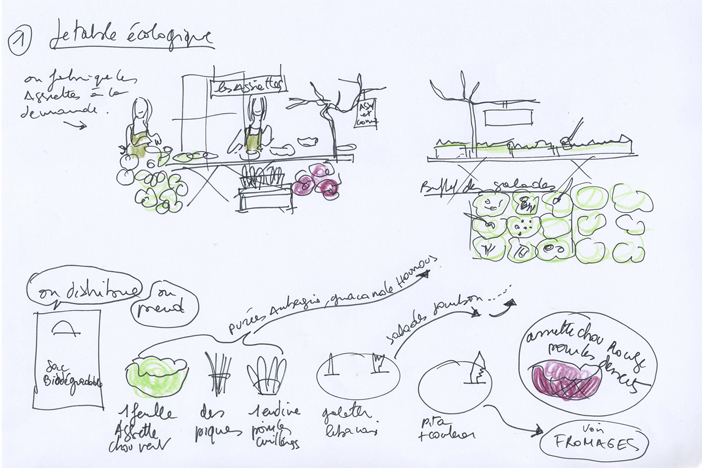 1 Jetable écologique
on fabrique les
Assiettes à la
demande.
les Assiettes
Buffet de salades
on distribue
on
prend
purées Aubergine, guacamole Houmous
salades jambon.....
Sac
Biodégradable
1 feuille
Assiette
chou vert
des
piques
1 endive
pour les
cuillères
galette
libanais
pita
+ couteau
assiette chou Rouge
pour les desserts
voir
FROMAGES